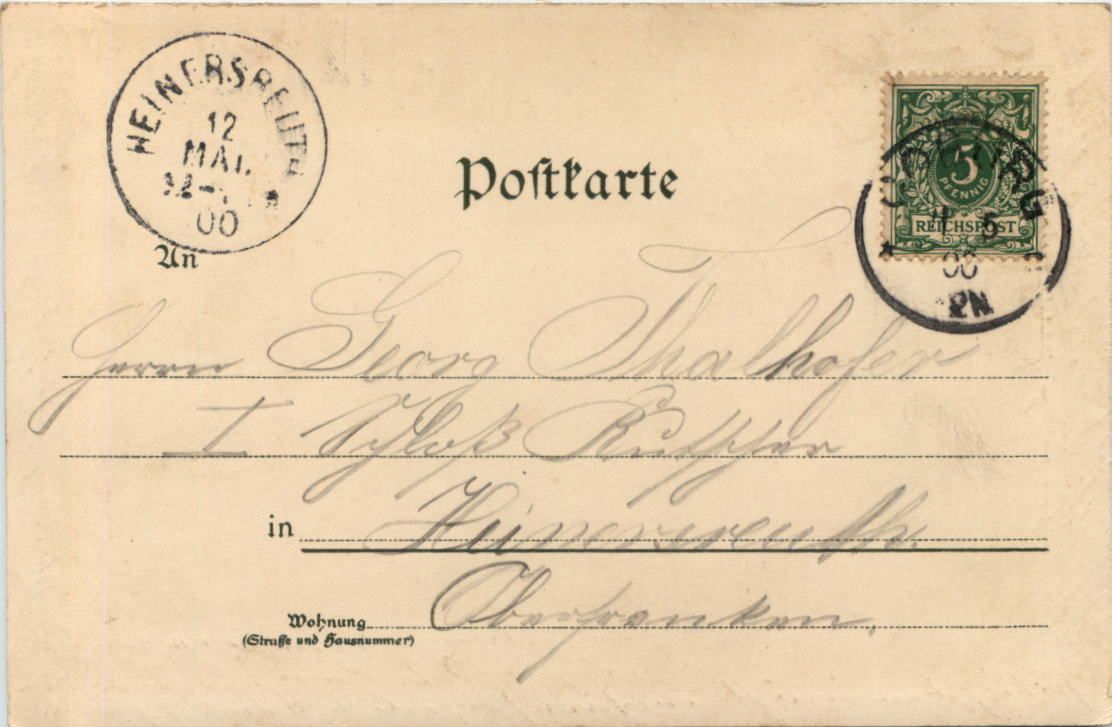 HEINERSREUTH
12
MAI.
00
Postkarte
5
PFENNIG
REICHSPOST
5
00
N.
An
Herrn Georg Thalhofer
I Schloß Kutscher
in Heinersreuth.
Wohnung Oberfranken.
(Straße und Hausnummer)